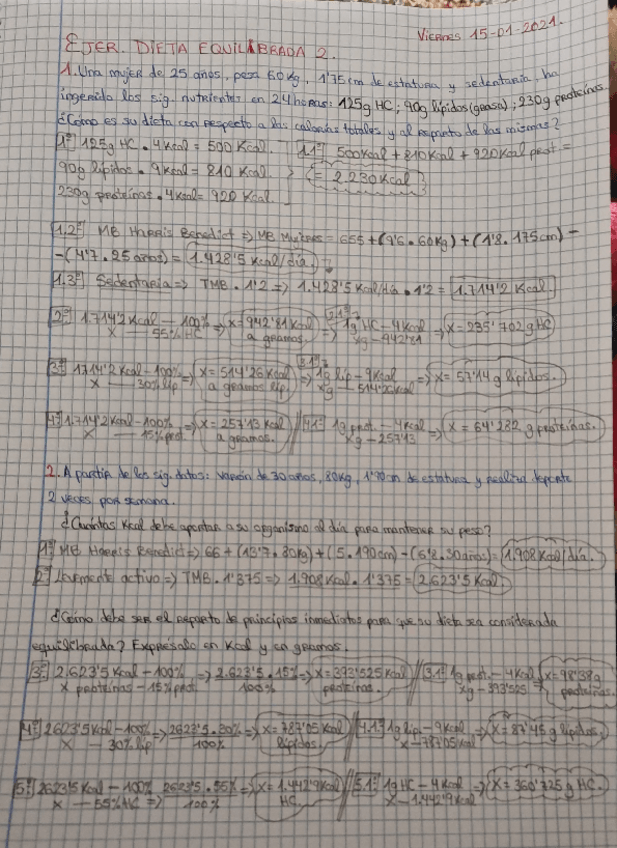 Viernes 15-01-2021.
EJER. DIETA EQUILIBRADA 2.
1. Una mujer de 25 años, pesa 60kg, 1'75cm de estatura y sedentaria, ha
ingerido los sig. nutrientes en 24 horas: 125g HC; 90g lípidos (grasa); 230g proteínas.
¿Cómo es su dieta con respecto a las calorías totales y al reparto de las mismas?
1º 125g HC . 4Kcal = 500 Kcal. 1.1º 500Kcal + 810Kcal + 920Kcal prot. =
90g lípid. . 9Kcal = 810 Kcal. = 2.230Kcal
230g proteínas . 4Kcal = 920 Kcal.
1.2º MB Harris Benedict => MB Mujeres = 655 + (9'6 . 60Kg) + (1'8 . 175cm) -
- (4'7 . 25 años) = 1.428'5 Kcal/día.
1.3º Sedentaria => TMB . 1'2 => 1.428'5 Kcal/día . 1'2 = 1.714'2 Kcal
2º 1.714'2 Kcal - 100% => x = 942'81 Kcal 2.1º => 1g HC - 4Kcal => x = 235'702 g HC
x - 55% HC a gramos. xg - 942'81
3º 1714'2 Kcal - 100% => x = 514'26 Kcal 3.1º => 1g lip - 9Kcal => x = 57'14 g lípidos.
x - 30% lip a gramos lip. xg - 514'26Kcal
4º 1.714'2 Kcal - 100% => x = 257'13 Kcal 4.1º 1g prot. - 4Kcal => x = 64'282 g proteínas.
x - 15% prot. a gramos. xg - 257'13
2. A partir de los sig. datos: varón de 30 años, 80Kg, 1'90cm de estatura y realiza deporte
2 veces por semana.
¿Cuántas Kcal debe aportar a su organismo al día para mantener su peso?
1º MB Harris Benedict => 66 + (13'7 . 80Kg) + (5 . 190cm) - (6'8 . 30años) = 1.908 Kcal/día.
2º Levemente activo => TMB . 1'375 => 1.908 Kcal . 1'375 = 2.623'5 Kcal
¿Cómo debe ser el reparto de principios inmediatos para que su dieta sea considerada
equilibrada? Expresalo en Kcal y en gramos.
3º 2.623'5 Kcal - 100% => 2.623'5 . 15% => x = 393'525 Kcal 3.1º 1g prot. - 4Kcal x = 98'38g
x proteínas - 15% prot. 100% proteínas. xg - 393'525 => proteínas.
4º 2623'5 Kcal - 100% => 2623'5 . 30% => x = 787'05 Kcal 4.1º 1g lip - 9Kcal => x = 87'45 g lípidos.
x - 30% lip 100% lípidos. x - 787'05Kcal
5º 2623'5 Kcal - 100% 2623'5 . 55% => x = 1.442'9Kcal 5.1º 1g HC - 4Kcal => x = 360'725 g HC.
x - 55% HC => 100% HC. x - 1.442'9Kcal